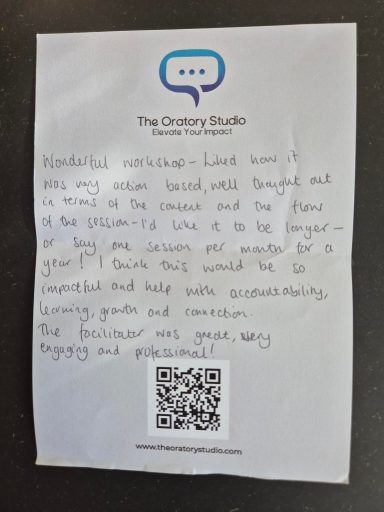 The Oratory Studio
Elevate Your Impact
Wonderful workshop - Liked how it
was very action based, well thought out
in terms of the content and the flow
of the session - I'd like it to be longer -
or say one session per month for a
year! I think this would be so
impactful and help with accountability,
learning, growth and connection.
The facilitator was great, very
engaging and professional!
www.theoratorystudio.com